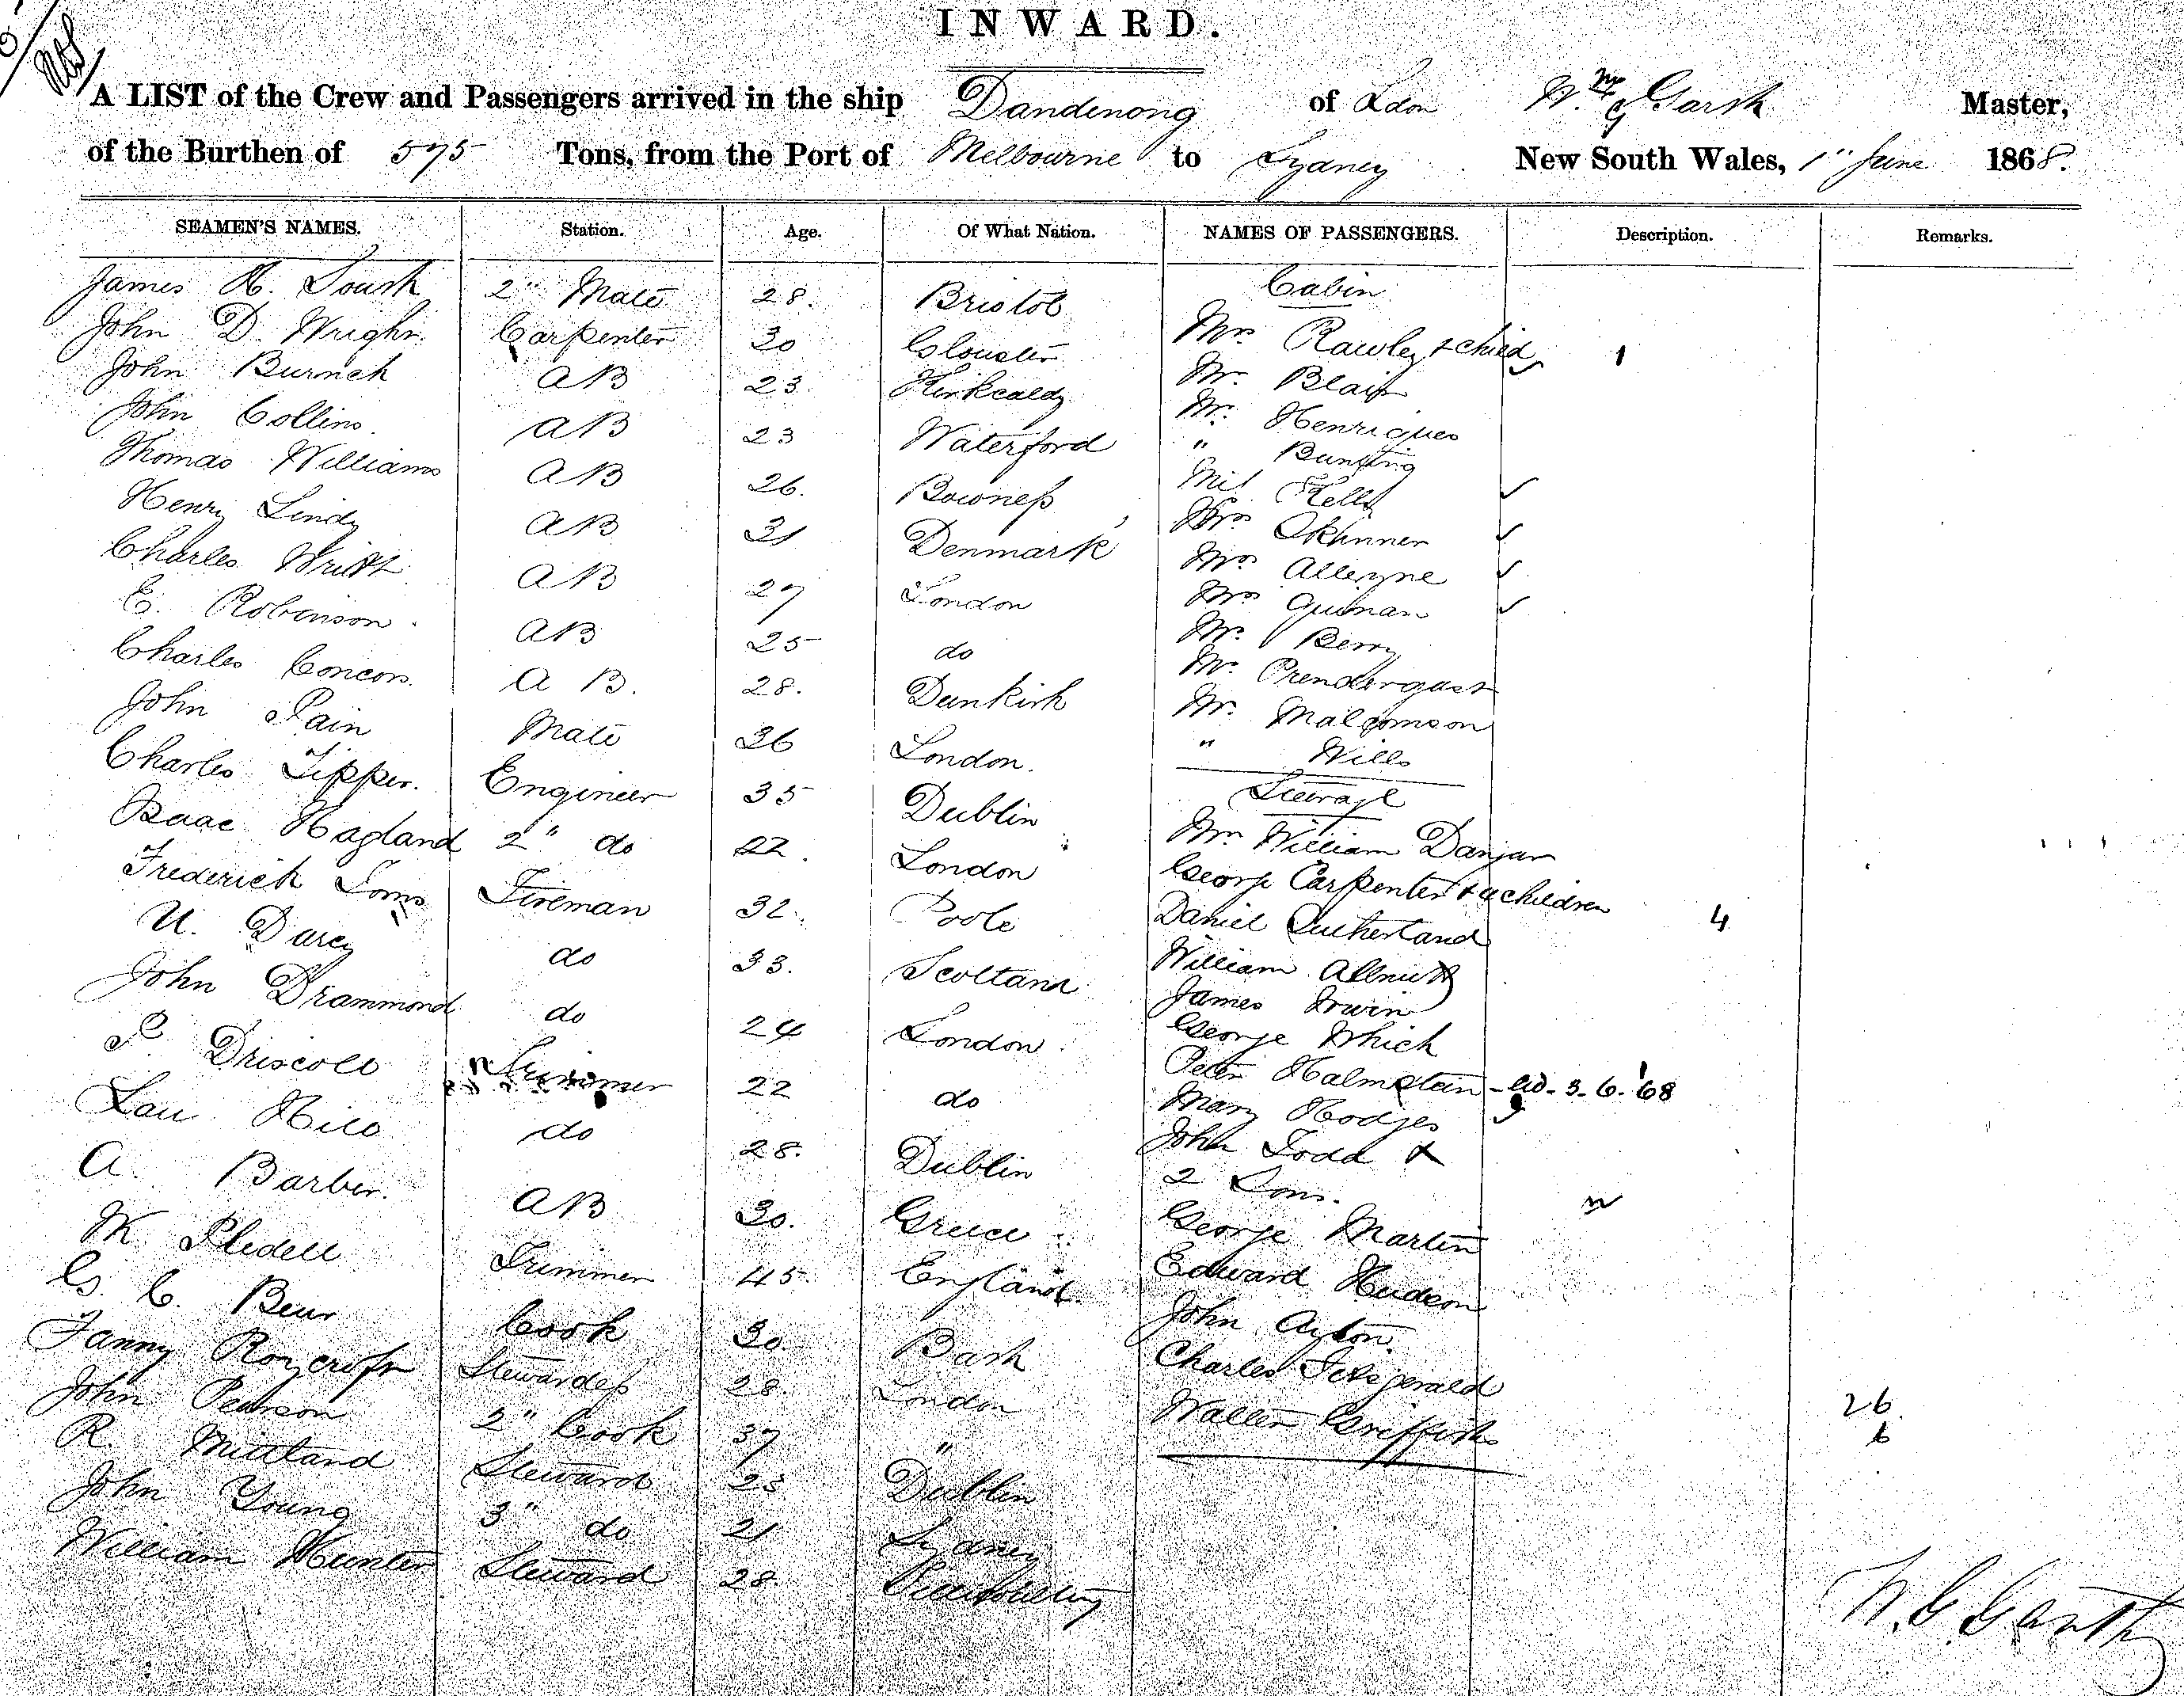 INWARD.
A LIST of the Crew and Passengers arrived in the ship Dandenong of Ldon Wm G Garth Master,
of the Burthen of 575 Tons, from the Port of Melbourne to Sydney New South Wales, 1" June 1868.
SEAMEN'S NAMES. Station. Age. Of What Nation. NAMES OF PASSENGERS. Description. Remarks.
James H. 2" Mate 28. Bristol Cabin
John D. Wright Carpenter 30 Glouster Mr. Rawley + child 1
John AB 23 Kirkcaldy Mr. Blair
John Collins AB 23 Waterford Mr. Henriques
Thomas Williams AB 26. Bowness " Bunting
Henry Lindy AB 31 Denmark Kelly
Charles AB 27 London Mrs Skhnner
E. Robinson AB 25 do Mrs Alleyne
Charles A B. 28. Dunkirk Mrs
John Pain Mate 36 London. Mr. Berry
Charles Tipper. Engineer 35 Dublin Mr. Prendergast
Isaac Hagland 2" do 22. London Mr. Malcomson
Frederick Fireman 32. Poole " Wills
U. Darcy do 33. Scotland Steerage
John Drammond do 24 London William Danjar
P Driscoll Trimmer 22 do George Carpenter + 4 children 4
Lau Hill do 28. Dublin Daniel Sutherland
A. Barber. AB 30. Greece William Allnutt
W Pledell Trimmer 45 England James Irwin
G. C. Cook 30 Bath George Which
Fanny Roycroft Stewardess 28 London Peter Halmstein 3. 6. '68
John Pearson 2" Cook 37 " Mary Hodges
R. Mittland Steward 23 Dublin John Todd &
John Young 3" do 21 Sydney 2 Sons.
William Hunter Steward 28.
George Martin
Edward Hudson
John Ayton.
Charles Fitzgerald
Walter Griffiths
26
6
W. G. Garth